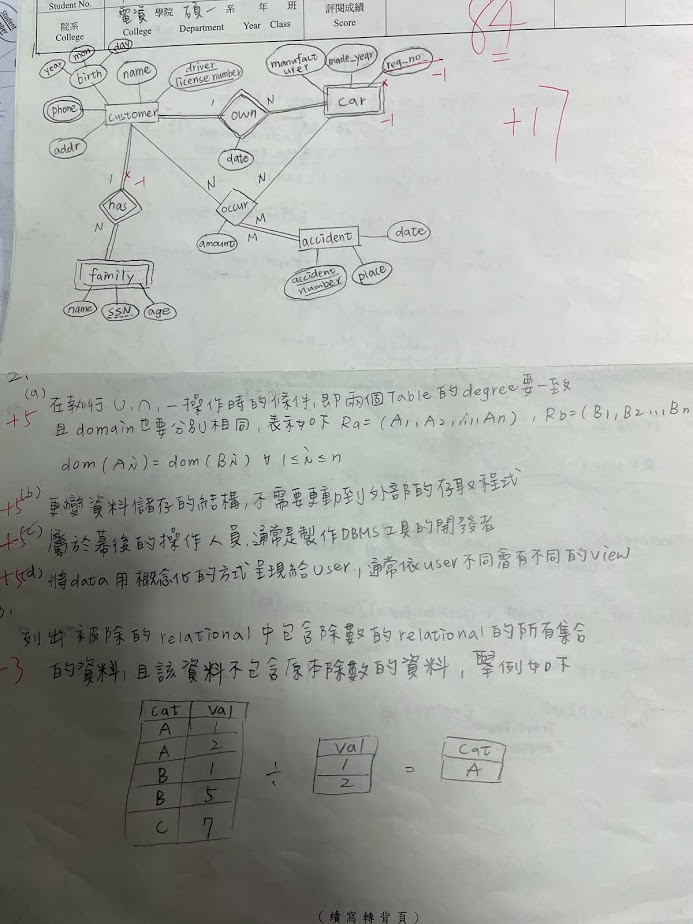 Student No.
院系
College
電資 學院 碩一 系 年 班
College Department Year Class
評閱成績
Score
84
+17
year
mon
day
birth
name
driver
license number
phone
customer
addr
1
own
N
date
manufact
urer
made_year
reg_no
-1
car
-1
1
-1
has
N
N
N
occur
M
M
amount
accident
date
accident
number
place
family
name
SSN
age
2.
(a) 在執行 ∪,∩,－操作時的條件,即兩個Table的degree要一致
+5 且domain也要分別相同,表示如下 Ra=(A1,A2,...,An),Rb=(B1,B2...,Bn
dom(Ai)=dom(Bi) ∀ 1≤i≤n
+5 (b) 更變資料儲存的結構,不需要更動到外部的存取程式
+5 (c) 屬於幕後的操作人員,通常是製作DBMS工具的開發者
+5 (d) 將data用概念化的方式呈現給user,通常依user不同會有不同的view
列出被除的relational中包含除數的relational的所有集合
-3 的資料,且該資料不包含原本除數的資料,舉例如下
Cat Val
A 1
A 2
B 1
B 5
C 7
÷
Val
1
2
=
Cat
A
(續寫轉背頁)